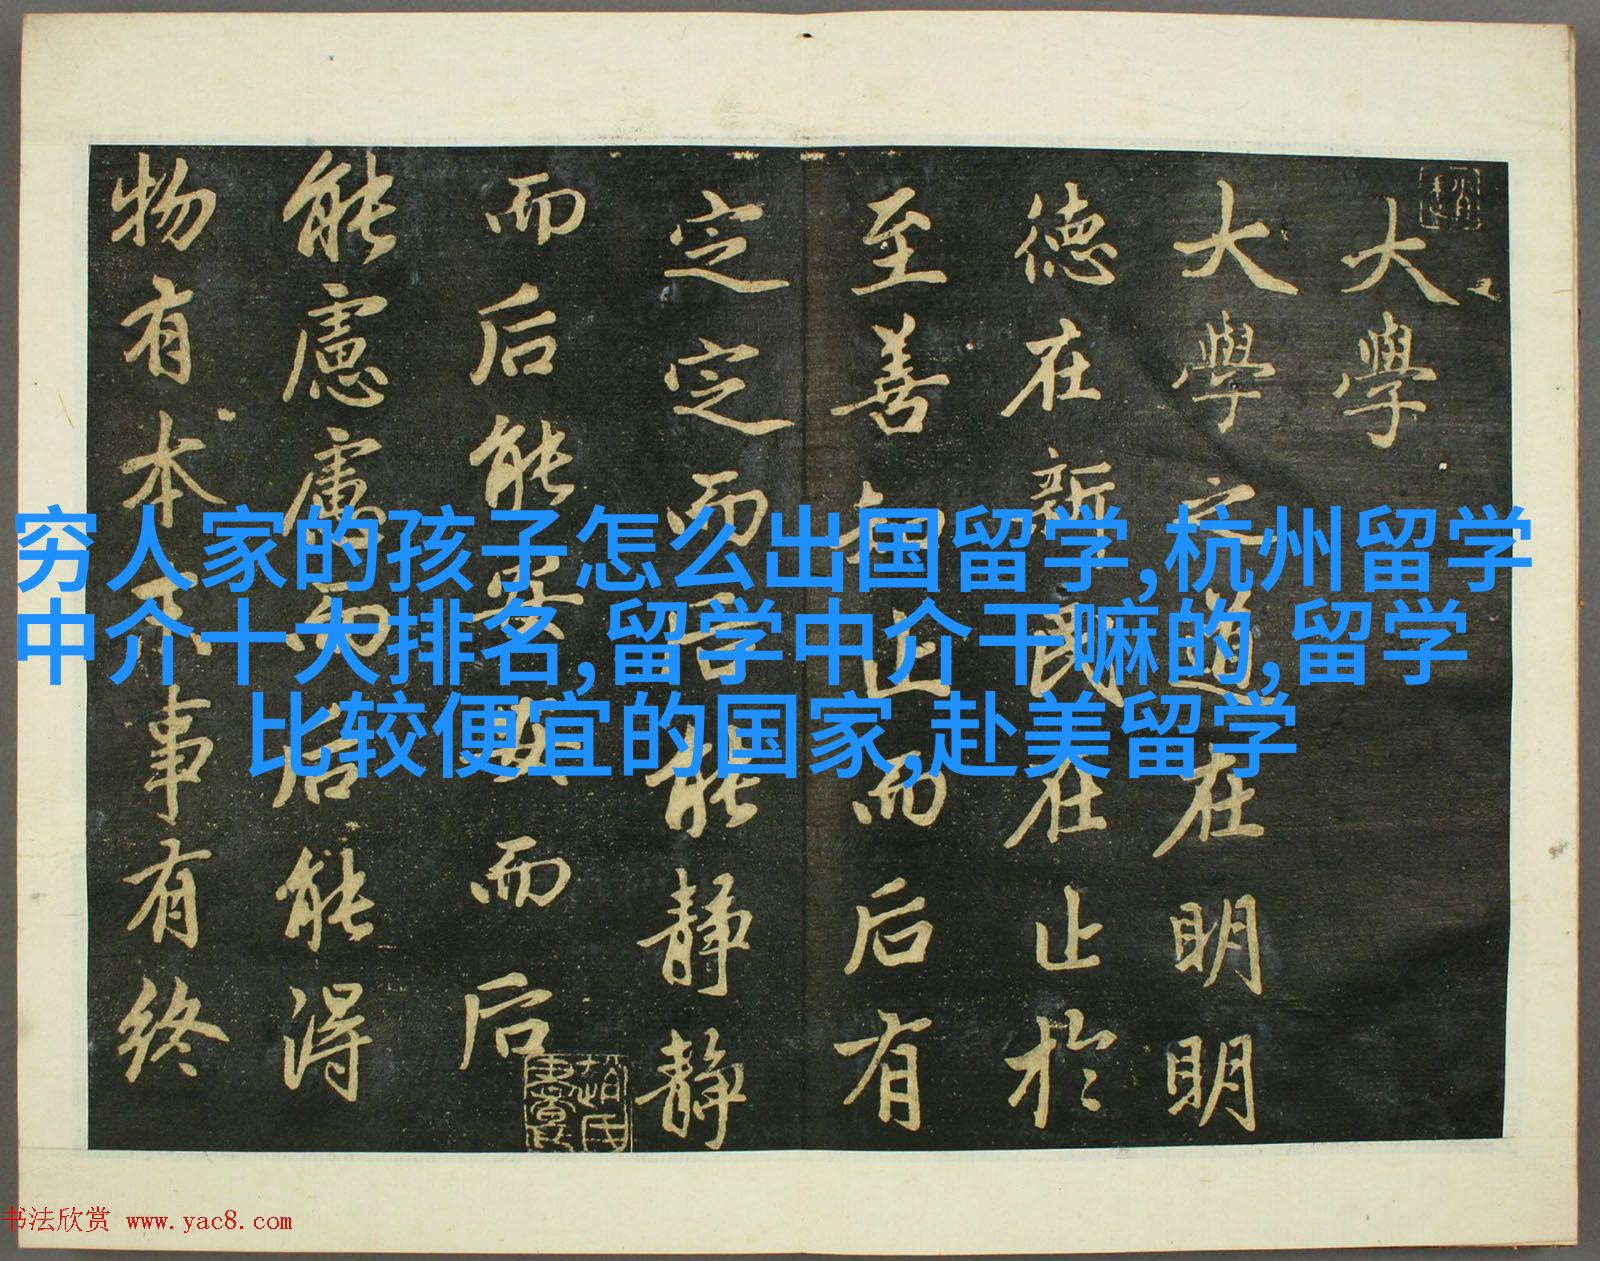 大學
大學之道在明明
德在新民在止於
至善知止而后有
定定而后能静静
而后能安安而后
能慮慮而后能得
物有本末事有終
穷人家的孩子怎么出国留学,杭州留学
中介十大排名,留学中介干嘛的,留学
比较便宜的国家,赴美留学
书法欣赏 www.yac8.com